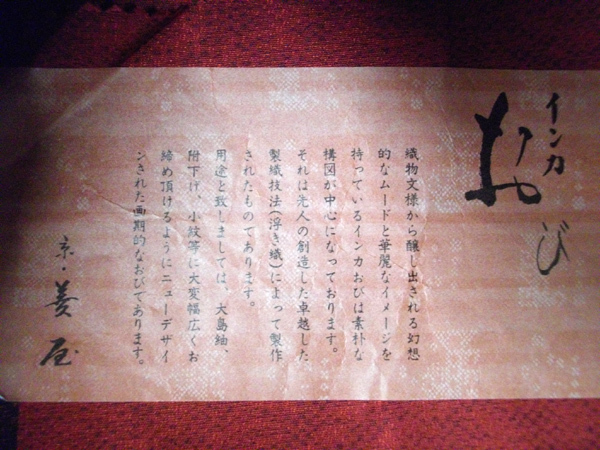 インカ
おび
織物文様から醸し出される幻想
的なムードと華麗なイメージを
持っているインカおびは素朴な
構図が中心になっております。
それは先人の創造した卓越した
製織技法(浮き織)によって製作
されたものであります。
用途と致しましては、大島紬、
附下げ、小紋等に大変幅広くお
締め頂けるようにニューデザイ
ンされた画期的なおびであります。
京・菱屋